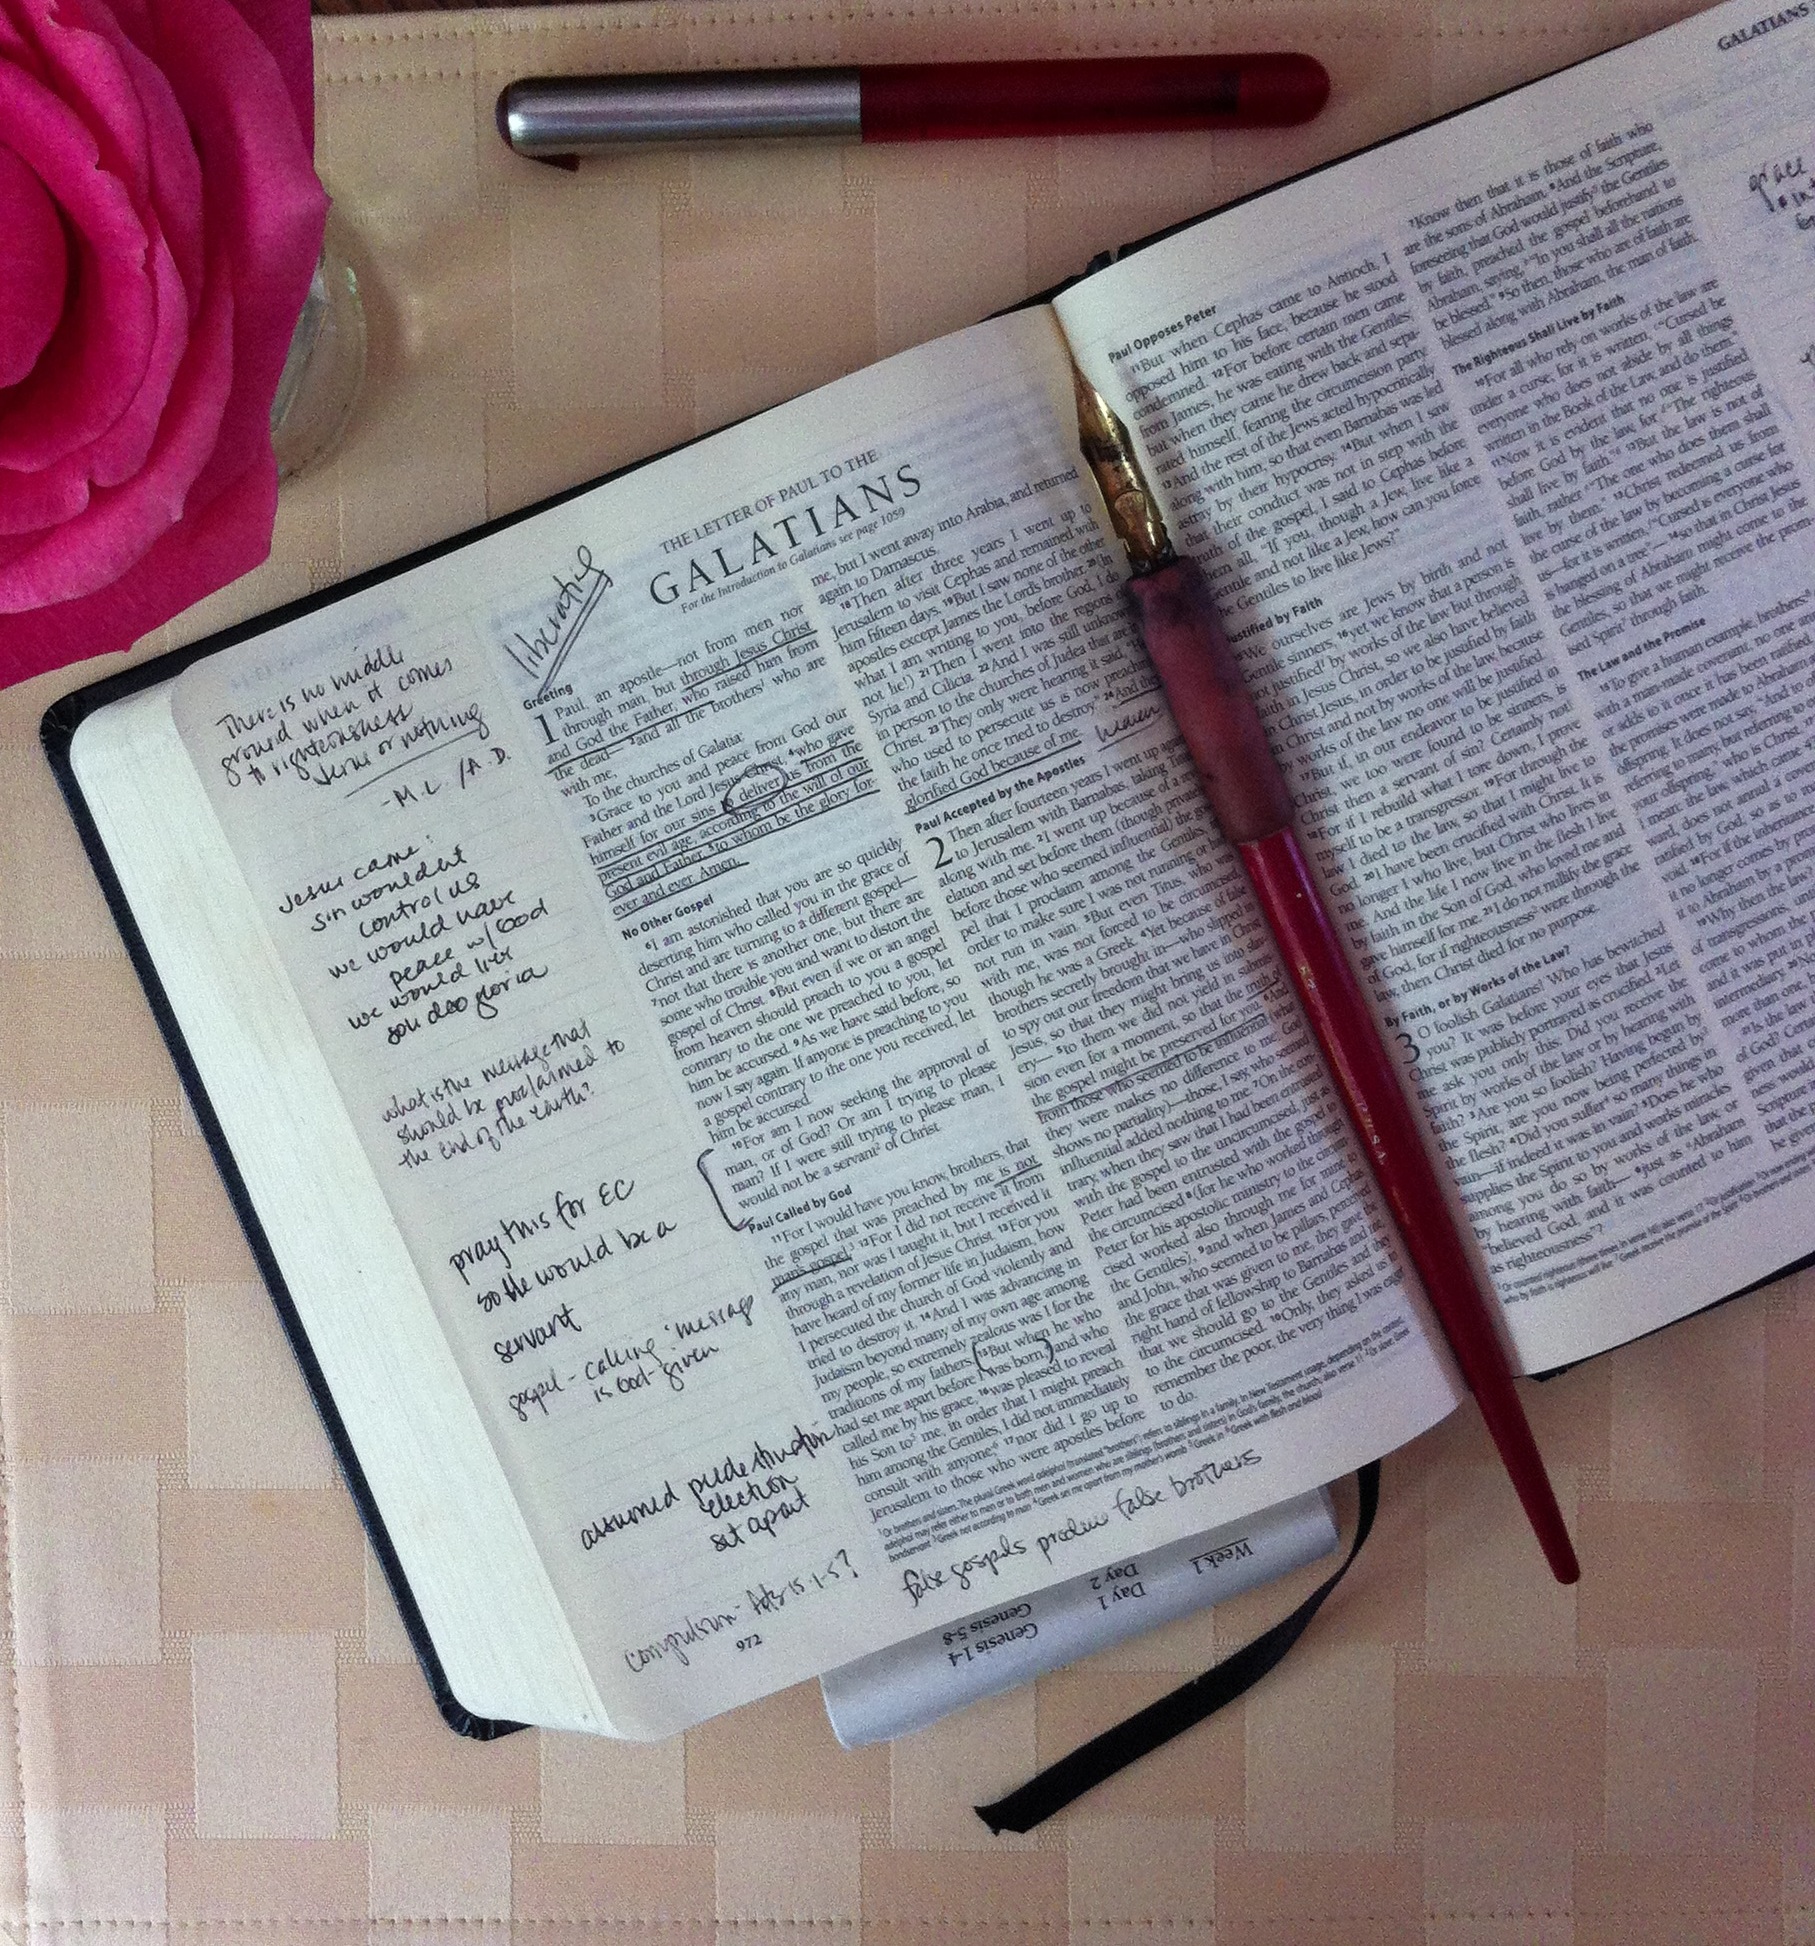 THE LETTER OF PAUL TO THE
GALATIANS
For the Introduction to Galatians see page 1059
There is no middle
ground when it comes
to righteousness
Jesus or nothing
-M.L./A.D.
Jesus came:
sin wouldn't
control us
we would have
peace w/God
we would live
soli deo gloria
what is the message that
should be proclaimed to
the end of the earth?
pray this for EC
so he would be a
servant
gospel - calling message
is God-given
assumed predestination
election
set apart
compulsion - Acts 15:1-5?
972
Greeting
1 Paul, an apostle—not from men nor
through man, but through Jesus Christ
and God the Father, who raised him from
the dead— 2and all the brothers1 who are
with me,
To the churches of Galatia:
3Grace to you and peace from God our
Father and the Lord Jesus Christ, 4who gave
himself for our sins to deliver us from the
present evil age, according to the will of our
God and Father, 5to whom be the glory for-
ever and ever. Amen.
No Other Gospel
6I am astonished that you are so quickly
deserting him who called you in the grace of
Christ and are turning to a different gospel—
7not that there is another one, but there are
some who trouble you and want to distort the
gospel of Christ. 8But even if we or an angel
from heaven should preach to you a gospel
contrary to the one we preached to you, let
him be accursed. 9As we have said before, so
now I say again: If anyone is preaching to you
a gospel contrary to the one you received, let
him be accursed.
10For am I now seeking the approval of
man, or of God? Or am I trying to please
man? If I were still trying to please man, I
would not be a servant2 of Christ.
Paul Called by God
11For I would have you know, brothers, that
the gospel that was preached by me is not
man's gospel.3 12For I did not receive it from
any man, nor was I taught it, but I received it
through a revelation of Jesus Christ. 13For you
have heard of my former life in Judaism, how
I persecuted the church of God violently and
tried to destroy it. 14And I was advancing in
Judaism beyond many of my own age among
my people, so extremely zealous was I for the
traditions of my fathers. 15But when he who
had set me apart before I was born,4 and who
called me by his grace, 16was pleased to reveal
his Son to5 me, in order that I might preach
him among the Gentiles, I did not immediately
consult with anyone;6 17nor did I go up to
Jerusalem to those who were apostles before
me, but I went away into Arabia, and returned
again to Damascus.
18Then after three years I went up to
Jerusalem to visit Cephas and remained with
him fifteen days. 19But I saw none of the other
apostles except James the Lord's brother. 20(In
what I am writing to you, before God, I do
not lie!) 21Then I went into the regions of
Syria and Cilicia. 22And I was still unknown
in person to the churches of Judea that are
Christ. 23They only were hearing it said,
who used to persecute us is now preaching
the faith he once tried to destroy." 24And they
glorified God because of me.
Paul Accepted by the Apostles
2 Then after fourteen years I went up again
to Jerusalem with Barnabas, taking
along with me. 2I went up because of a
elation and set before them (though privately
before those who seemed influential) the
pel that I proclaim among the Gentiles,
order to make sure I was not running or
not run in vain. 3But even Titus, who was
with me, was not forced to be circumcised,
though he was a Greek. 4Yet because of false
brothers secretly brought in—who slipped in
to spy out our freedom that we have in Christ
Jesus, so that they might bring us into slav-
ery— 5to them we did not yield in submis-
sion even for a moment, so that the truth of
the gospel might be preserved for you. 6And
from those who seemed to be influential (what
they were makes no difference to me; God
shows no partiality)—those, I say, who seemed
influential added nothing to me. 7On the con-
trary, when they saw that I had been entrusted
with the gospel to the uncircumcised, just as
Peter had been entrusted with the gospel to
the circumcised 8(for he who worked through
Peter for his apostolic ministry to the circum-
cised worked also through me for mine to
the Gentiles), 9and when James and Cephas
and John, who seemed to be pillars, perceived
the grace that was given to me, they gave the
right hand of fellowship to Barnabas and me,
that we should go to the Gentiles and they
to the circumcised. 10Only, they asked us to
remember the poor, the very thing I was eager
to do.
1 Or brothers and sisters. The plural Greek word adelphoi (translated "brothers") refers to siblings in a family. In New Testament usage, depending on the context,
adelphoi may refer either to men or to both men and women who are siblings (brothers and sisters) in God's family, the church; also verse 11 2 Or slave; Greek
bondservant 3 Greek not according to man 4 Greek set me apart from my mother's womb 5 Greek in 6 Greek with flesh and blood
false gospels produce false brothers
Week 1
Day 1 Genesis 1-4
Day 2 Genesis 5-8
GALATIANS
Paul Opposes Peter
11But when Cephas came to Antioch, I
opposed him to his face, because he stood
condemned. 12For before certain men came
from James, he was eating with the Gentiles;
but when they came he drew back and sepa-
rated himself, fearing the circumcision party.
13And the rest of the Jews acted hypocritically
along with him, so that even Barnabas was led
astray by their hypocrisy. 14But when I saw
that their conduct was not in step with the
truth of the gospel, I said to Cephas before
them all, "If you, though a Jew, live like a
Gentile and not like a Jew, how can you force
the Gentiles to live like Jews?"
Justified by Faith
15We ourselves are Jews by birth and not
Gentile sinners; 16yet we know that a person is
not justified by works of the law but through
faith in Jesus Christ, so we also have believed
in Christ Jesus, in order to be justified by faith
in Christ and not by works of the law, because
by works of the law no one will be justified.
17But if, in our endeavor to be justified in
Christ, we too were found to be sinners, is
Christ then a servant of sin? Certainly not!
18For if I rebuild what I tore down, I prove
myself to be a transgressor. 19For through the
law I died to the law, so that I might live to
God. 20I have been crucified with Christ. It is
no longer I who live, but Christ who lives in
me. And the life I now live in the flesh I live
by faith in the Son of God, who loved me and
gave himself for me. 21I do not nullify the grace
of God, for if righteousness were through the
law, then Christ died for no purpose.
By Faith, or by Works of the Law?
3 O foolish Galatians! Who has bewitched
you? It was before your eyes that Jesus
Christ was publicly portrayed as crucified. 2Let
me ask you only this: Did you receive the
Spirit by works of the law or by hearing with
faith? 3Are you so foolish? Having begun by
the Spirit, are you now being perfected by
the flesh? 4Did you suffer so many things in
vain—if indeed it was in vain? 5Does he who
supplies the Spirit to you and works miracles
among you do so by works of the law, or
by hearing with faith— 6just as "Abraham
believed God, and it was counted to him
as righteousness"?
7Know then that it is those of faith who
are the sons of Abraham. 8And the Scripture,
foreseeing that God would justify the Gentiles
by faith, preached the gospel beforehand to
Abraham, saying, "In you shall all the nations
be blessed." 9So then, those who are of faith are
blessed along with Abraham, the man of faith.
The Righteous Shall Live by Faith
10For all who rely on works of the law are
under a curse; for it is written, "Cursed be
everyone who does not abide by all things
written in the Book of the Law, and do them."
11Now it is evident that no one is justified
before God by the law, for "The righteous
shall live by faith." 12But the law is not of
faith, rather "The one who does them shall
live by them." 13Christ redeemed us from
the curse of the law by becoming a curse for
us—for it is written, "Cursed is everyone who
is hanged on a tree"— 14so that in Christ Jesus
the blessing of Abraham might come to the
Gentiles, so that we might receive the
Spirit through faith.
The Law and the Promise
15To give a human example, brothers:
with a man-made covenant, no one
or adds to it once it has been ratified.
the promises were made to Abraham
offspring. It does not say, "And to
referring to many, but referring to
your offspring," who is Christ.
I mean: the law, which came
ward, does not annul a
ratified by God, so as to
void. 18For if the inheritance
it no longer comes by
to Abraham by a
19Why then the law?
of transgressions, until
come to whom the
and it was put in
intermediary.
more than one,
21Is the law
of God? Certainly
given that
ness would
Scripture
grace